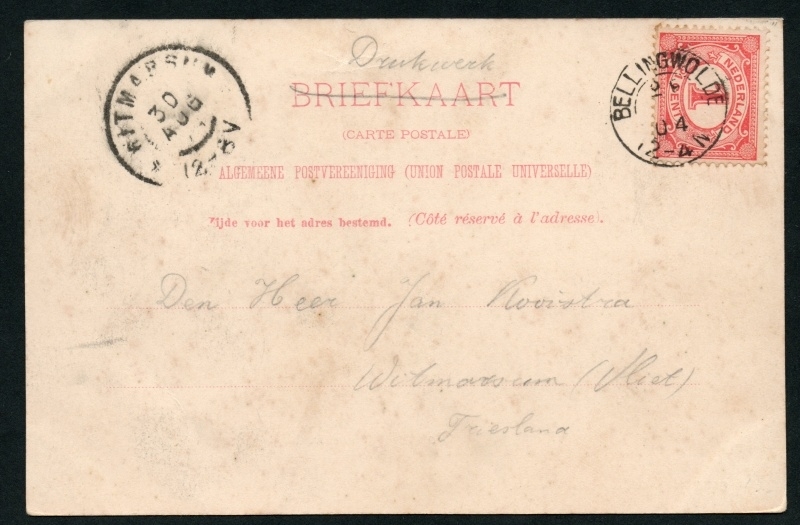 Drukwerk
BRIEFKAART
(CARTE POSTALE)
ALGEMEENE POSTVEREENIGING (UNION POSTALE UNIVERSELLE)
Zijde voor het adres bestemd. (Côté réservé à l'adresse).
WITMARSUM
30
AUG
12-8V
BELLINGWOLDE
04
12-4N
NEDERLAND
1
Den Heer Jan Kooistra
Witmarsum (Vliet)
Friesland